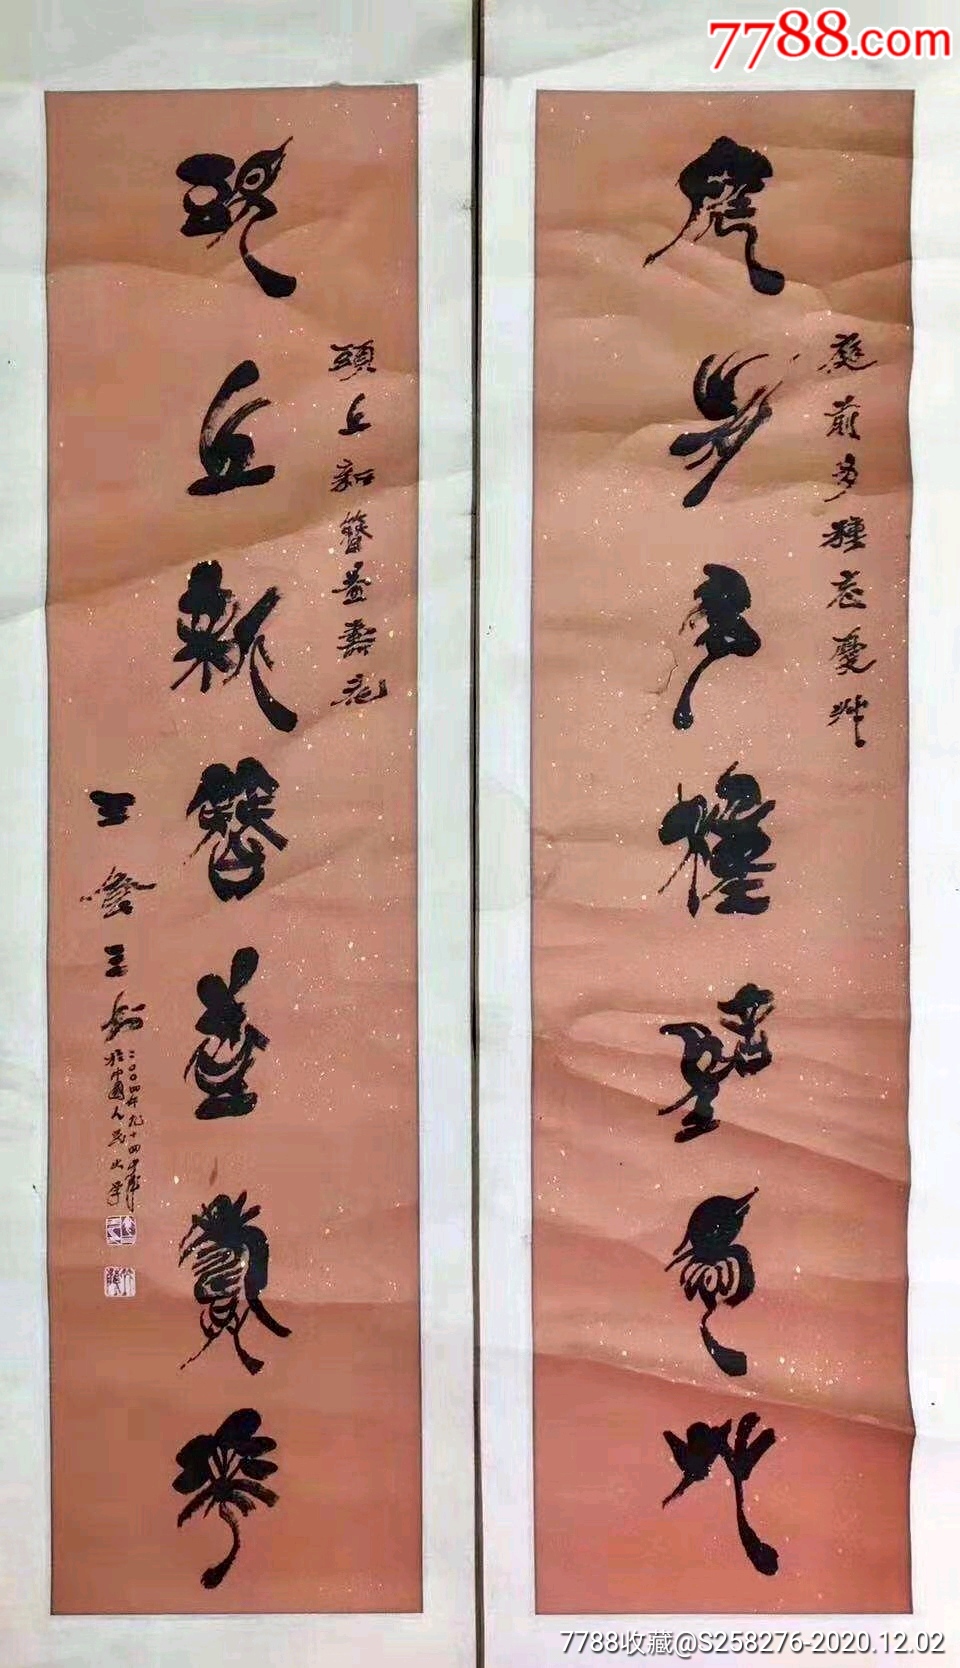 7788.com
庭前多種忘憂艸
庭前多種忘憂艸
頭上新簪益壽花
頭上新簪益壽華
二〇〇四年九十四
於中國人民大學
7788收藏@S258276-2020.12.02